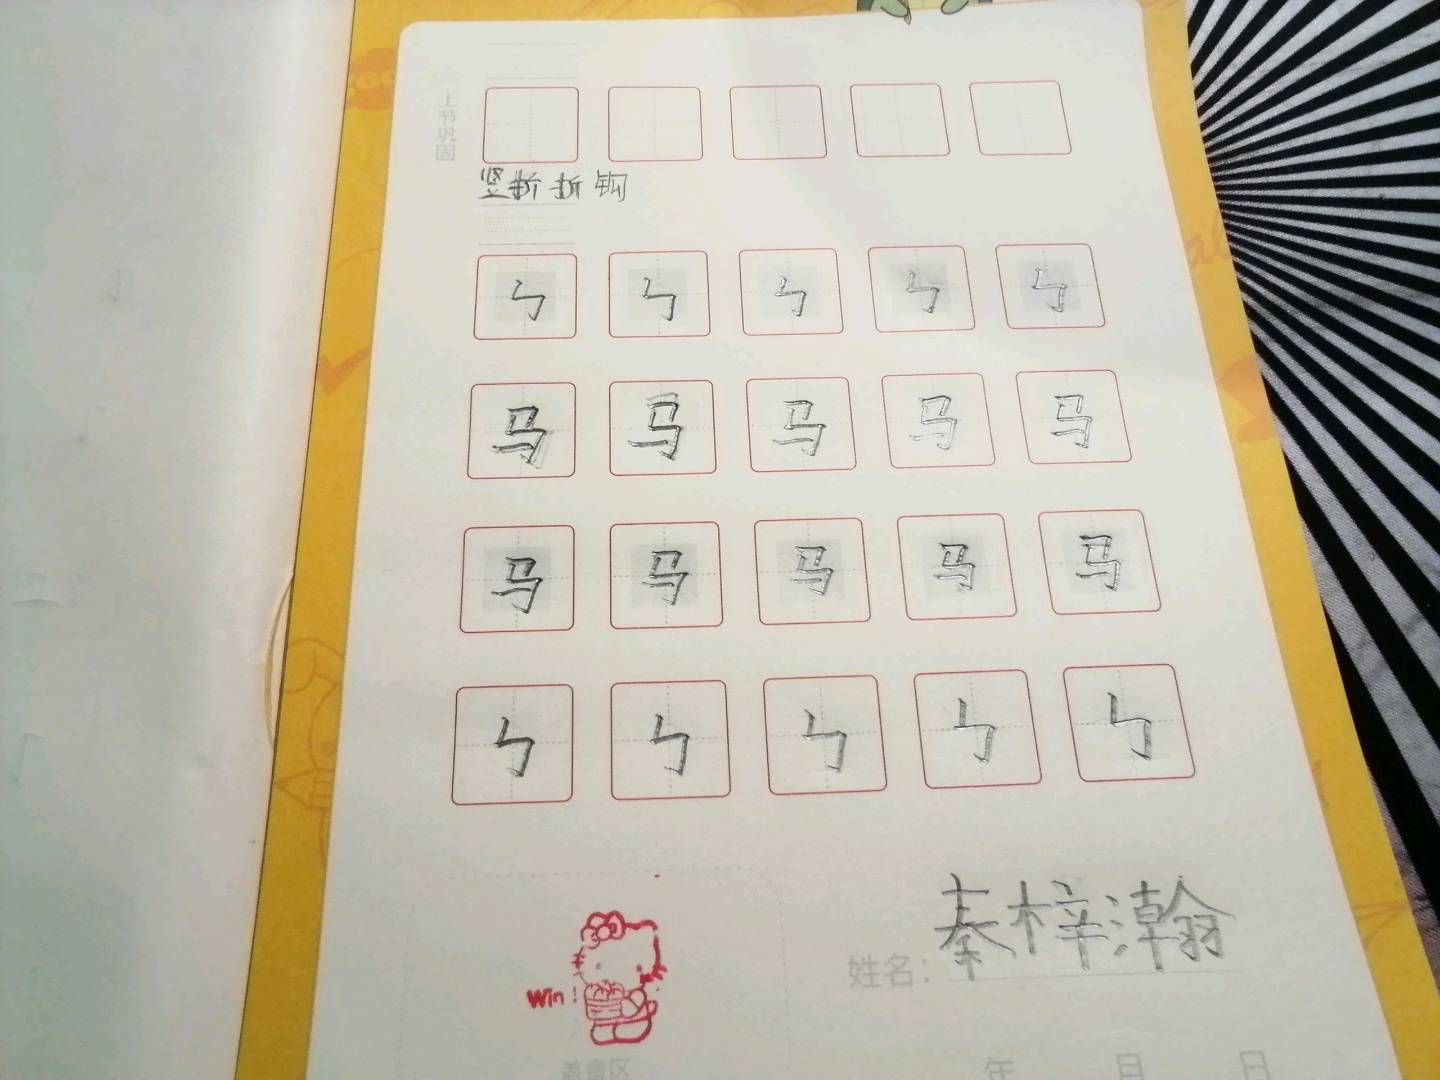 上节巩固
竖折折钩
ㄣ ㄣ ㄣ ㄣ ㄣ
马 马 马 马 马
马 马 马 马 马
ㄣ ㄣ ㄣ ㄣ ㄣ
姓名：秦梓瀚
Win!
盖章区
年 月 日